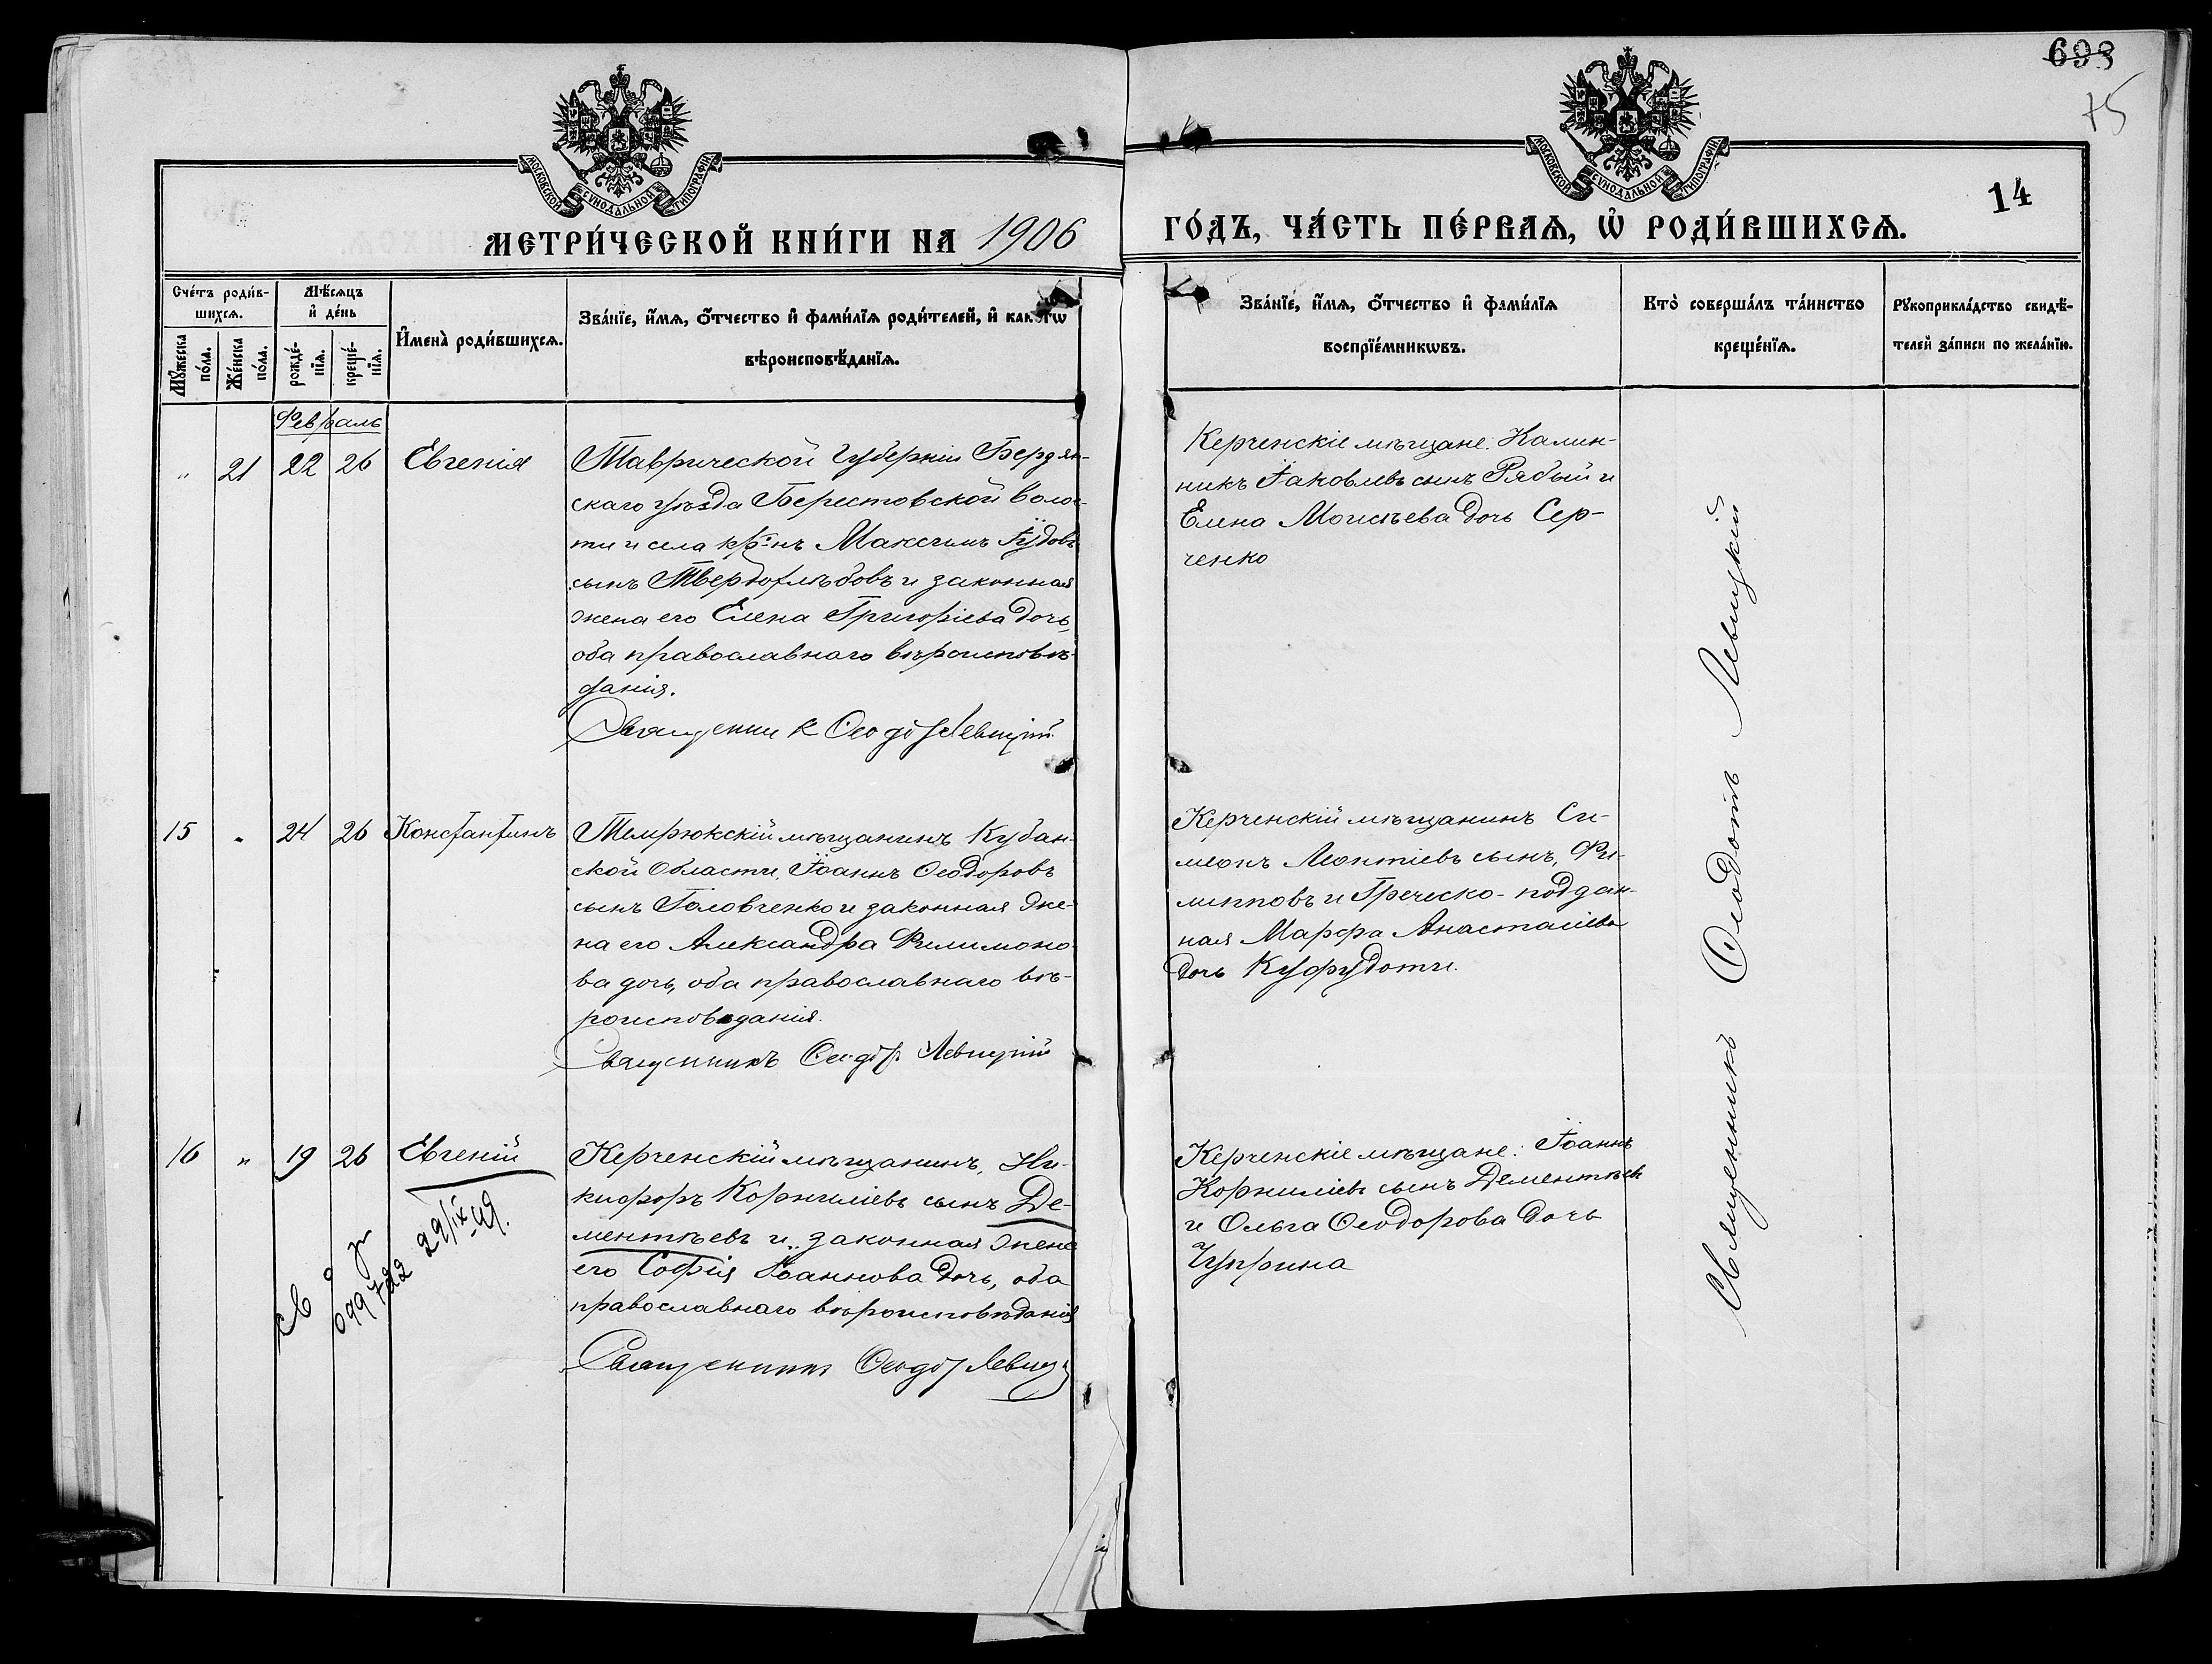 698
15
14
МОСКОВСКОЙ СѴНОДАЛЬНОЙ ТИПОГРАФІИ
МОСКОВСКОЙ СѴНОДАЛЬНОЙ ТИПОГРАФІИ
МЕТРИ́ЧЕСКОЙ КНИ́ГИ НА 1906
ГО́ДЪ, ЧА́СТЬ ПЕ́РВАѦ, Ѽ РОДИ́ВШИХСѦ.
Сче́тъ роди́в-
шихсѧ.
Мꙋ́жеска
по́ла.
Же́нска
по́ла.
Мѣ́сѧцъ
и҆ де́нь
рожде́-
нїѧ.
креще́-
нїѧ.
И҆мена̀ роди́вшихсѧ.
Зва́нїе, и҆́мѧ, ѻ҆́тчество и҆ фами́лїѧ роди́телей, и҆ как
вѣроисповѣ́данїѧ.
Зва́нїе, и҆́мѧ, ѻ҆́тчество и҆ фами́лїѧ
воспрїе́мникѡвъ.
Кто̀ соверша́лъ та́инство
креще́нїѧ.
Рꙋкоприкла́дство свидѣ́-
телей за́писи по жела́нїю.
Февраль
" 21 22 26 Евгенія
Таврической Губерніи Бердян-
скаго уѣзда Берестовской волос-
ти и села кр-нъ Максимъ Іудовъ
сынъ Твердохлѣбовъ и законная
жена его Елена Григоріева дочь,
оба православнаго вѣроисповѣ-
данія.
Священникъ Ѳеодотъ Левицкій
Керченскіе мѣщане: Калин-
никъ Іаковлевъ сынъ Рябый и
Елена Моисѣева дочь Сер-
ченко
15 " 24 26 Константинъ
Темрюкскій мѣщанинъ Кубан-
ской Области, Іоаннъ Ѳеодоровъ
сынъ Головченко и законная же-
на его Александра Филимоно-
ва дочь, оба православнаго вѣ-
роисповѣданія.
Священникъ Ѳеодотъ Левицкій
Керченскій мѣщанинъ Си-
меонъ Леонтіевъ сынъ, Фи-
липповъ и Греческо-поддан-
ная Марфа Анастасіева
дочь Куфудоти.
16 " 19 26 Евгеній
Керченскій мѣщанинъ, Ни-
кифоръ Корниліевъ сынъ Де-
ментьевъ и законная жена
его Софія Іоаннова дочь, оба
православнаго вѣроисповѣданія
Священникъ Ѳеодотъ Левицкій
Керченскіе мѣщане: Іоаннъ
Корниліевъ сынъ Дементьевъ
и Ольга Ѳеодорова дочь
Чуприна
29/IX-49.
Священникъ Ѳеодотъ Левицкій